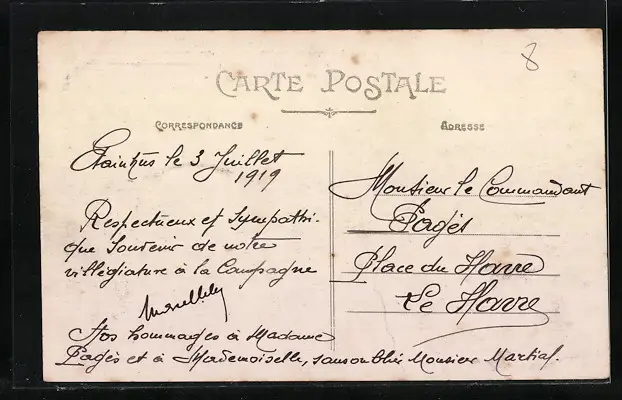 8
CARTE POSTALE
CORRESPONDANCE
ADRESSE
Étainhus le 3 Juillet
1919
Respectueux et Sympathi-
que Souvenir de notre
villégiature à la Campagne
Nos hommages à Madame
Pagès et à Mademoiselle, sans oublier Monsieur Martial.
Monsieur le Commandant
Pagès
Place du Havre
Le Havre